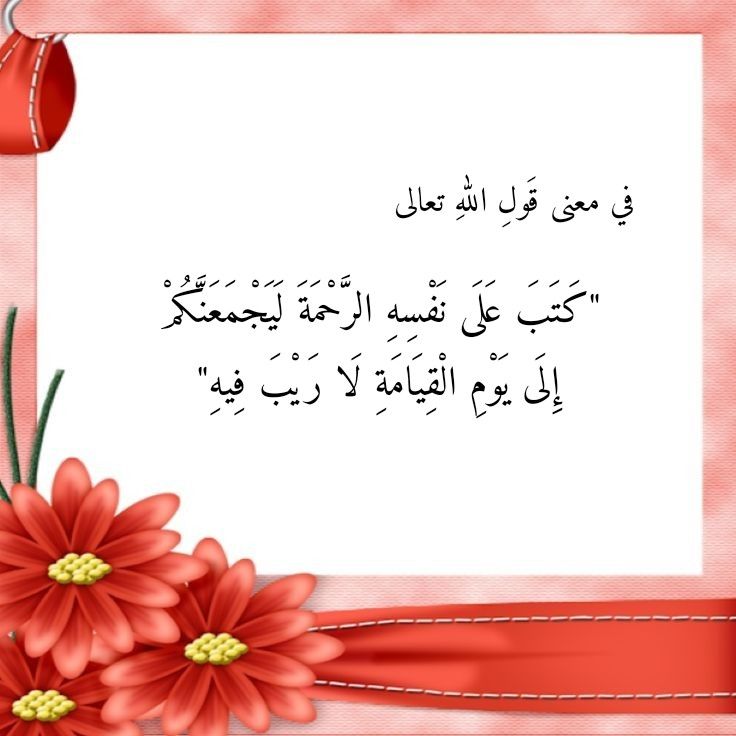 في معنى قَولِ اللهِ تعالى
"كَتَبَ عَلَى نَفْسِهِ الرَّحْمَةَ لَيَجْمَعَنَّكُمْ
إِلَى يَوْمِ الْقِيَامَةِ لَا رَيْبَ فِيهِ"